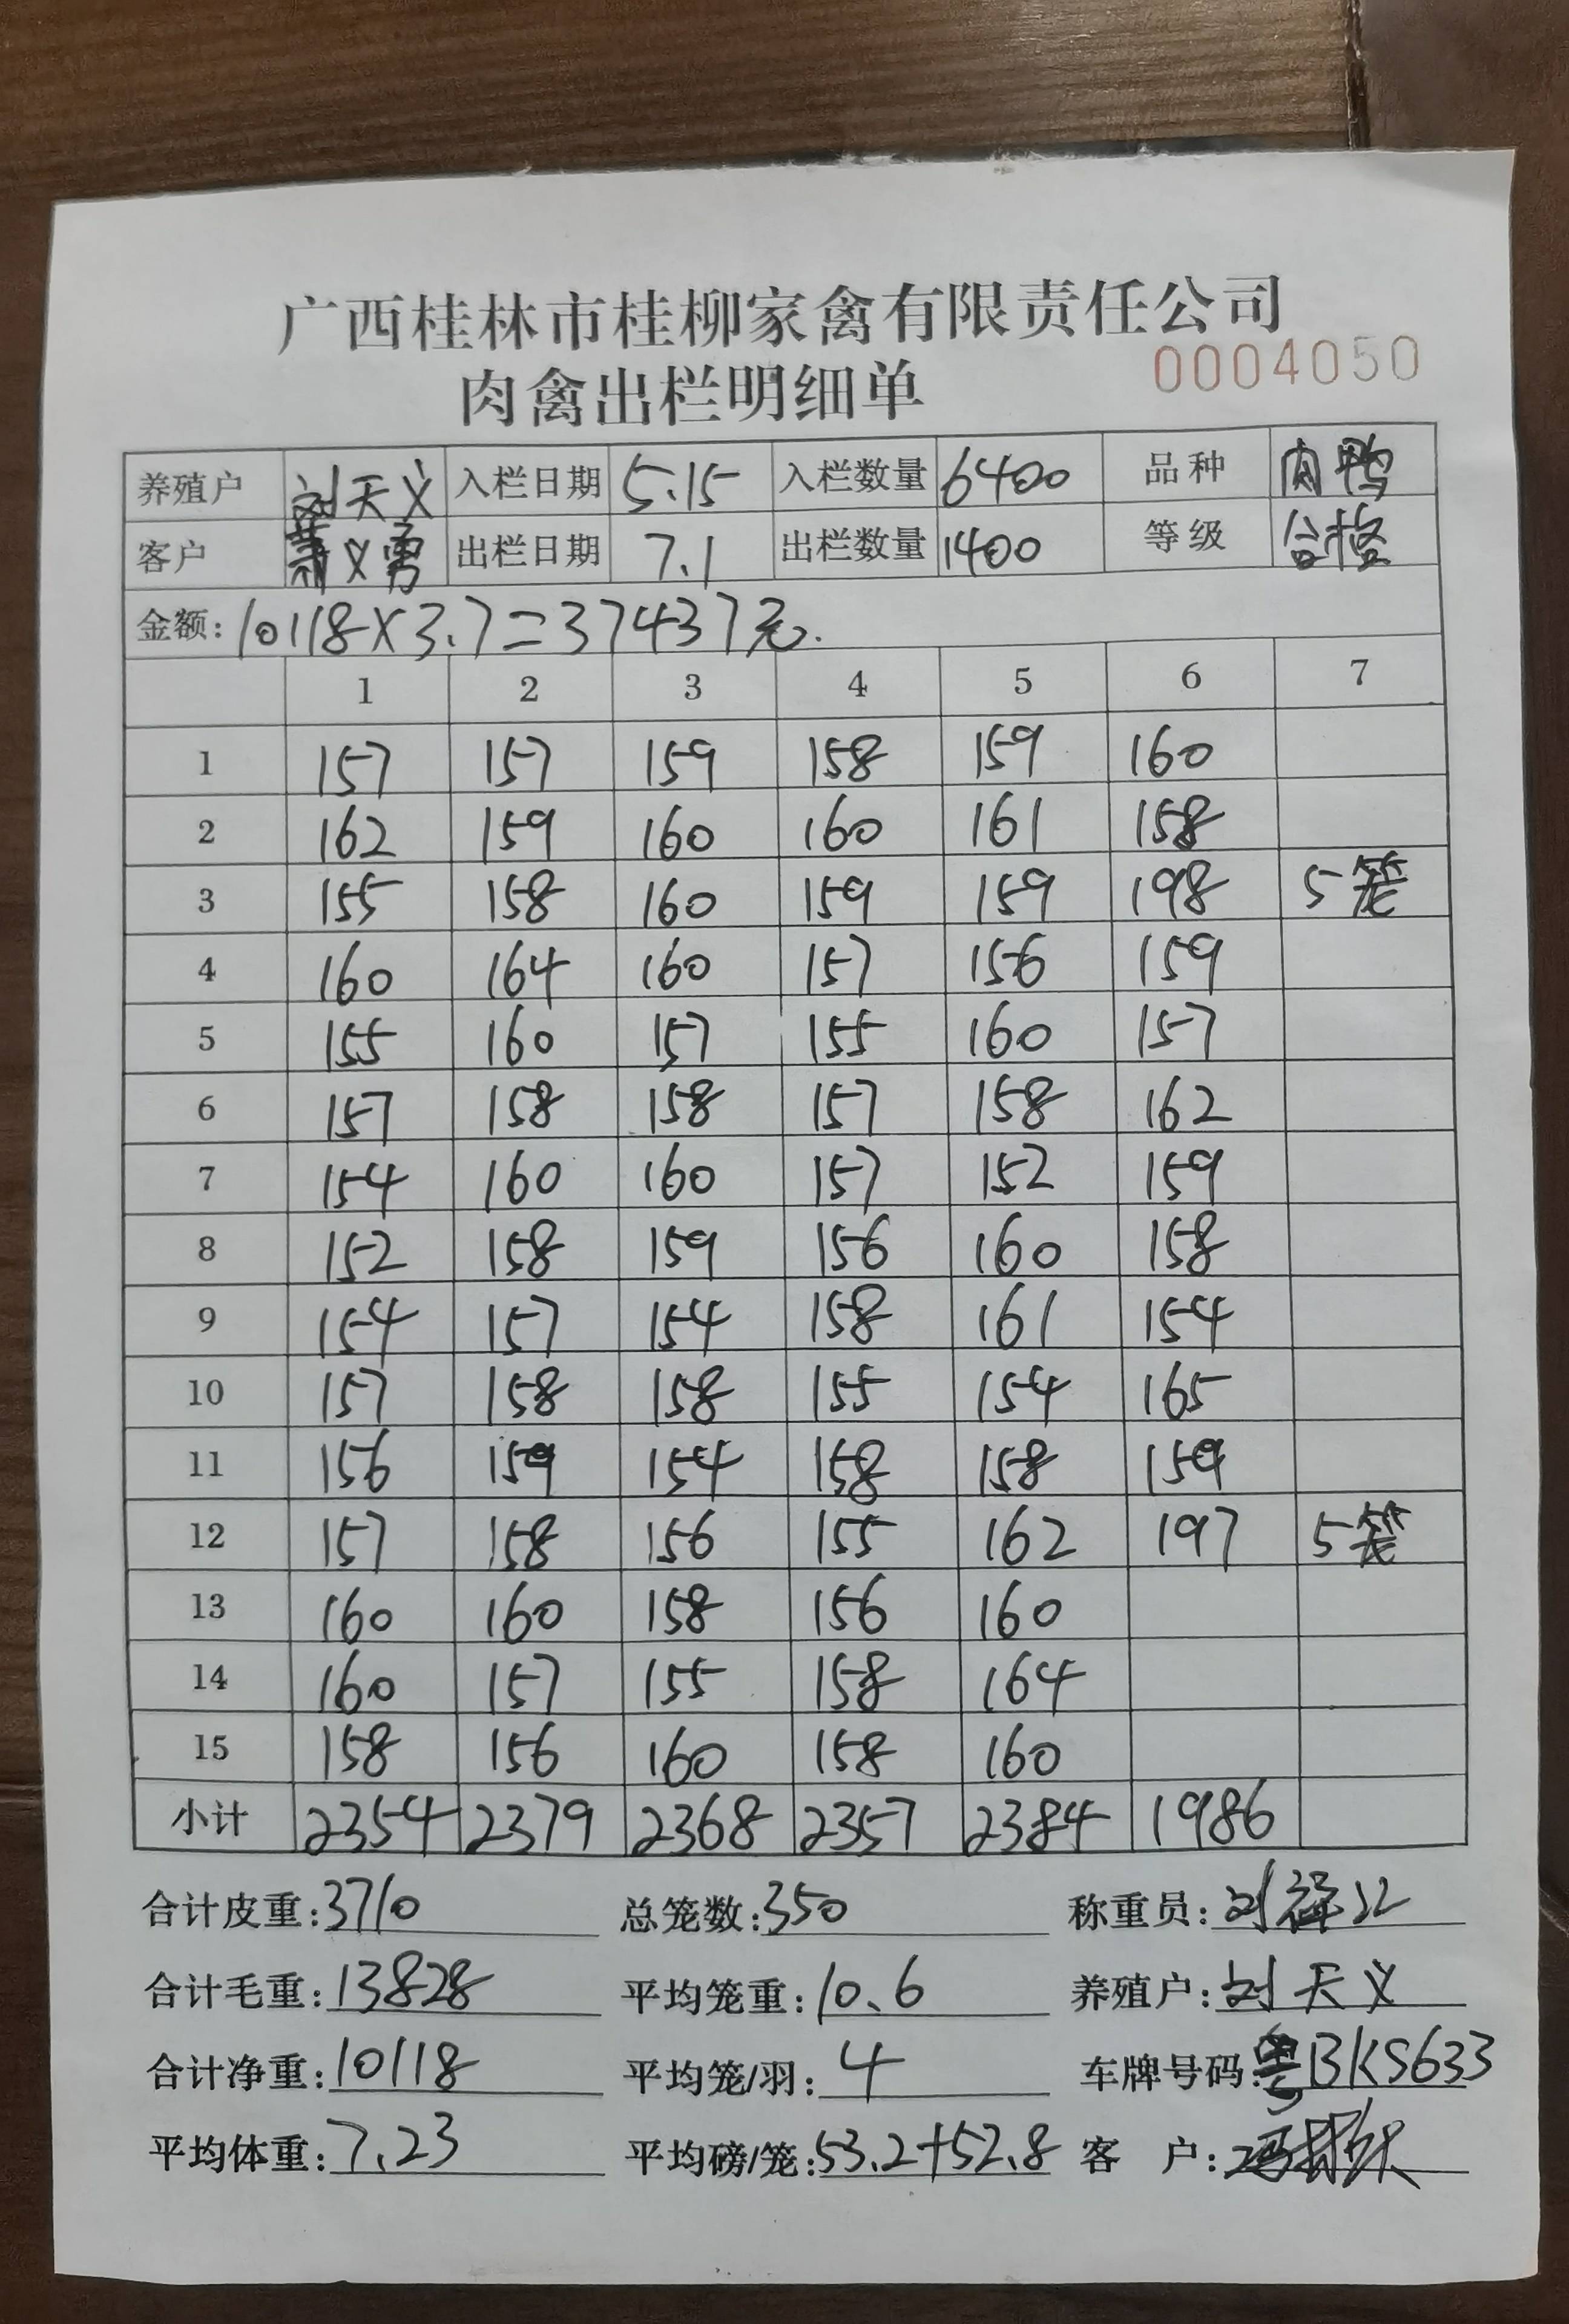 广西桂林市桂柳家禽有限责任公司
肉禽出栏明细单 0004050
养殖户 刘天义 入栏日期 5.15 入栏数量 6400 品种 肉鸭
客户 萧义勇 出栏日期 7.1 出栏数量 1400 等级 合格
金额: 10118×3.7=37437元.
1 2 3 4 5 6 7
1 157 157 159 158 159 160
2 162 159 160 160 161 158
3 155 158 160 159 159 198 5笼
4 160 164 160 157 156 159
5 155 160 157 155 160 157
6 157 158 158 157 158 162
7 154 160 160 157 152 159
8 152 158 159 156 160 158
9 154 157 154 158 161 154
10 157 158 158 155 154 165
11 156 159 154 158 158 159
12 157 158 156 155 162 197 5笼
13 160 160 158 156 160
14 160 157 155 158 164
15 158 156 160 158 160
小计 2354 2379 2368 2357 2384 1986
合计皮重: 3710 总笼数: 350 称重员:
合计毛重: 13828 平均笼重: 10.6 养殖户: 刘天义
合计净重: 10118 平均笼/羽: 4 车牌号码: 粤BKS633
平均体重: 7.23 平均磅/笼: 53.2+52.8 客 户: